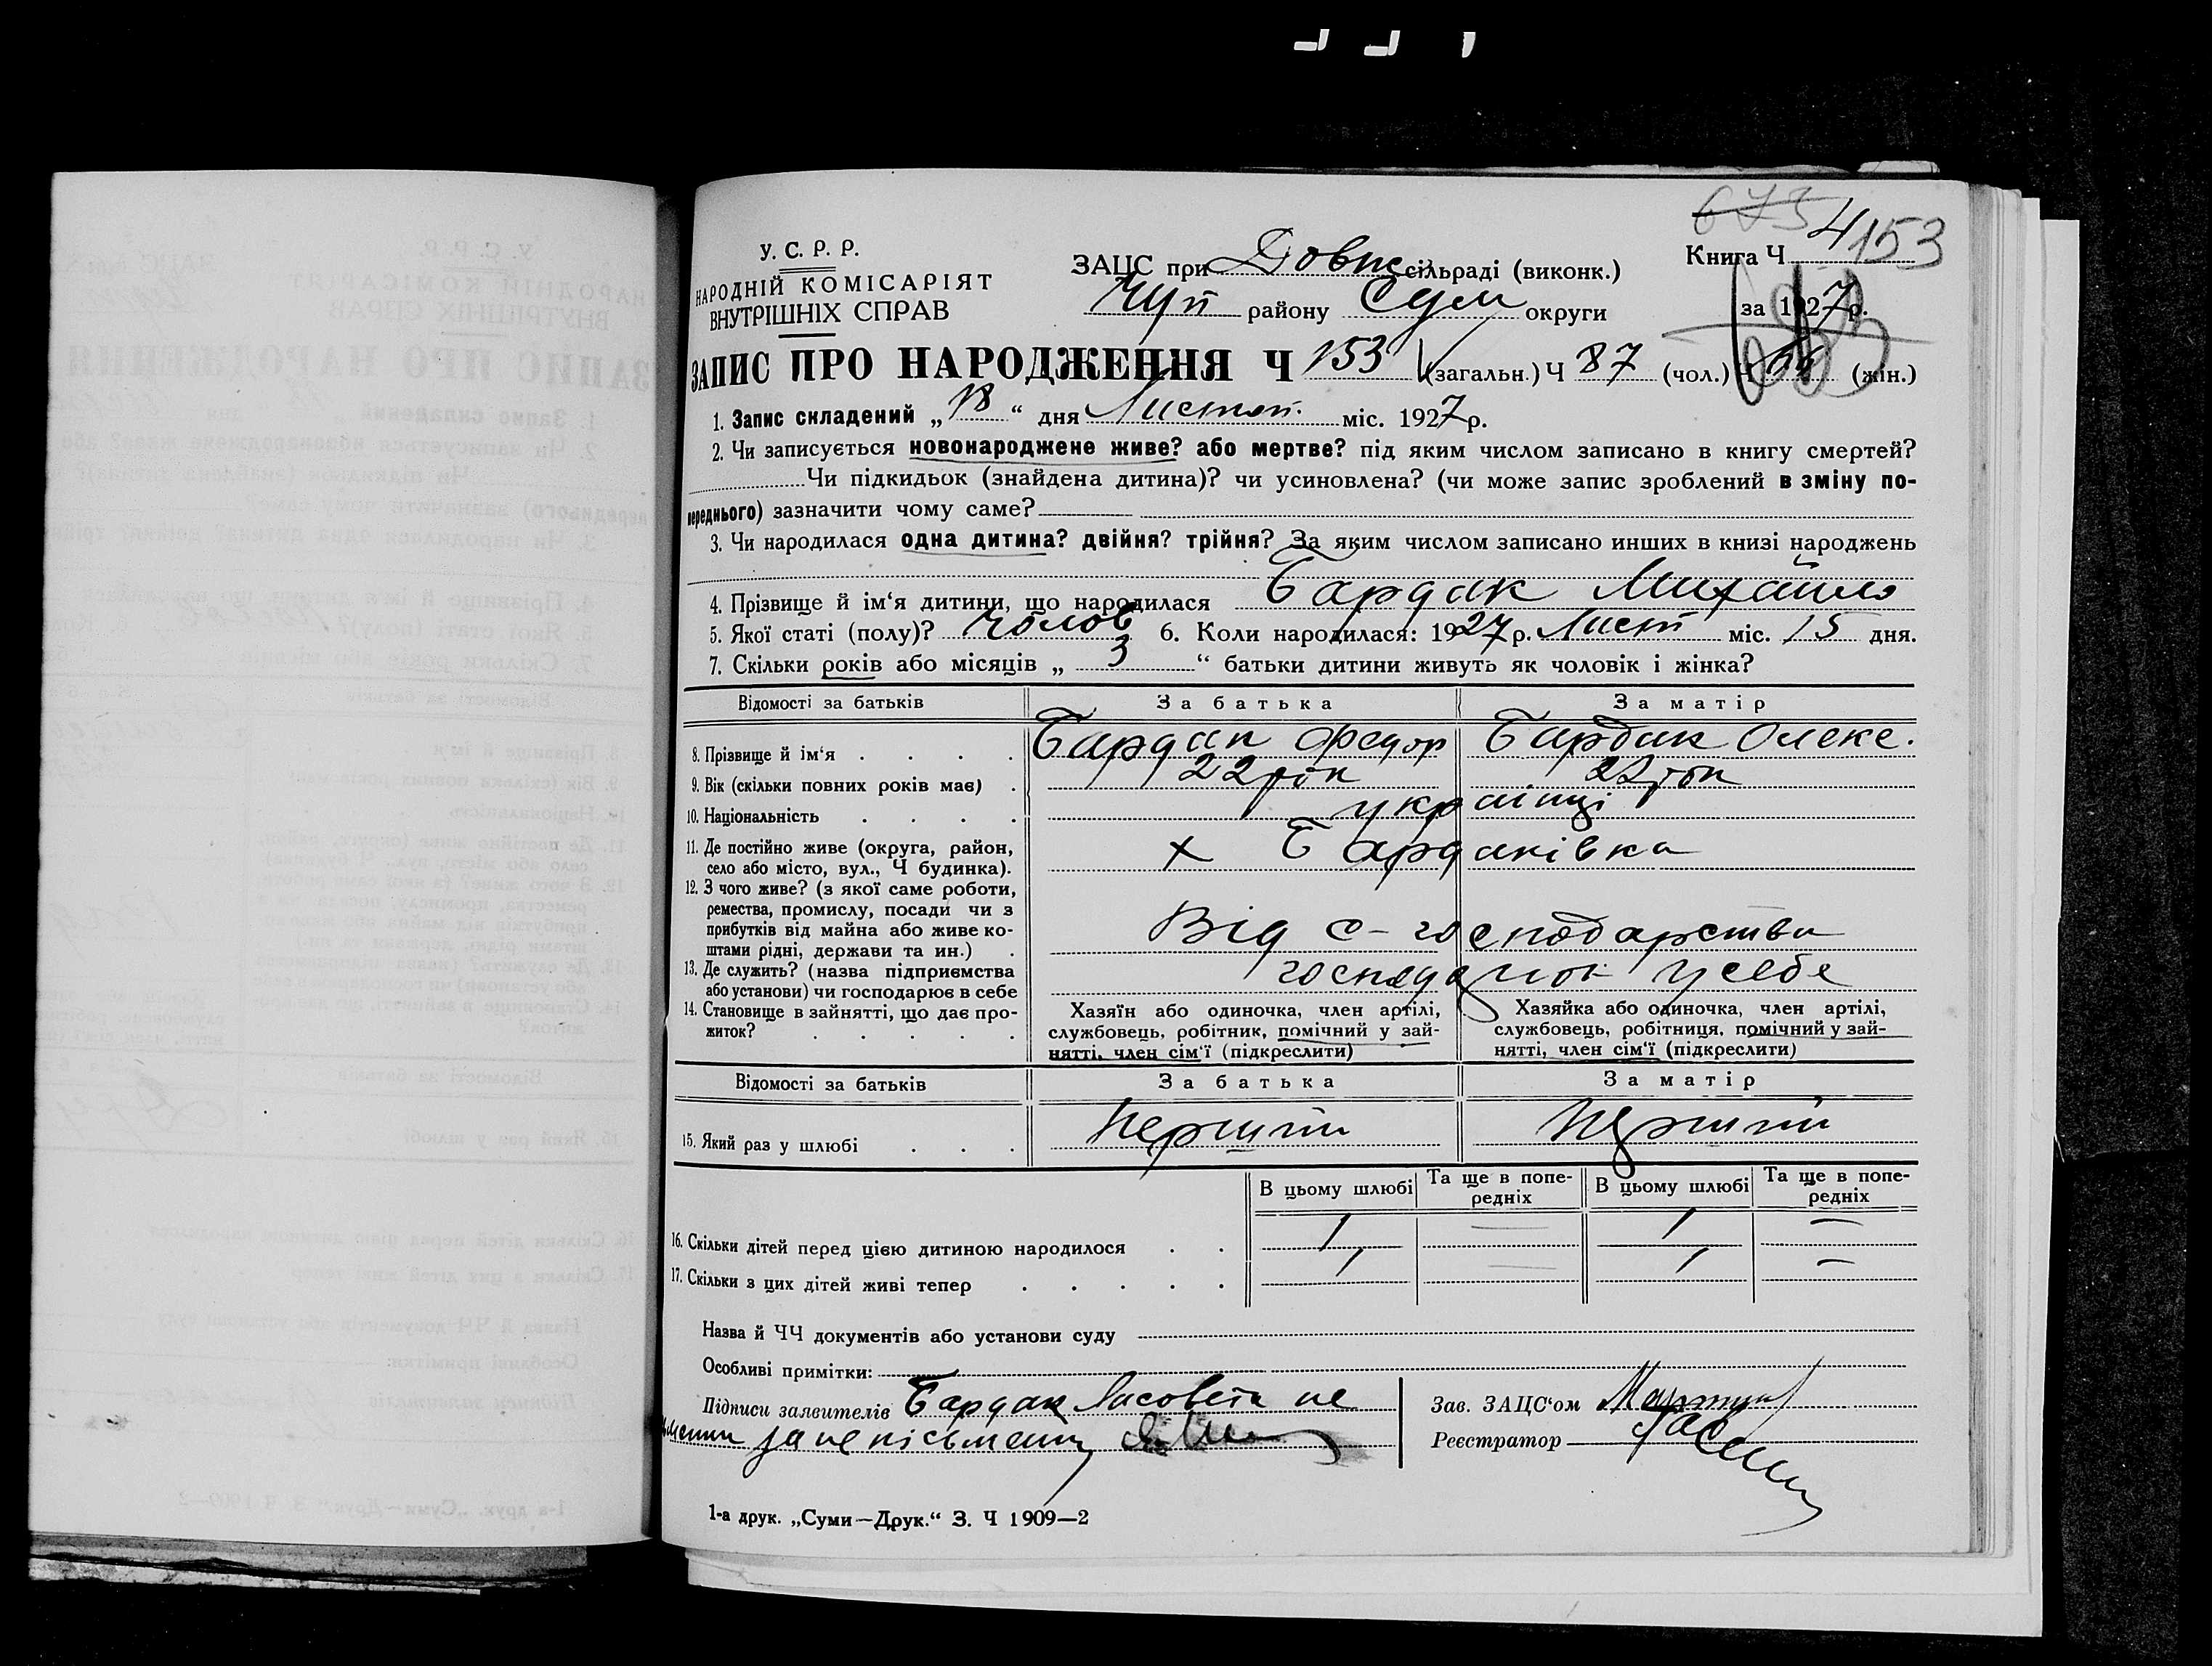 673 4 153
У. С. Р. Р.
НАРОДНІЙ КОМІСАРІЯТ
ВНУТРІШНІХ СПРАВ
ЗАЦС при Довж сільраді (виконк.)
Чуп району Сум округи
Книга Ч
за 1927 р.
ЗАПИС ПРО НАРОДЖЕННЯ Ч 153 (загальн.) Ч 87 (чол.) Ч (жін.)
1. Запис складений „18“ дня Листоп. міс. 1927 р.
2. Чи записується новонароджене живе? або мертве? під яким числом записано в книгу смертей?
Чи підкидьок (знайдена дитина)? чи усиновлена? (чи може запис зроблений в зміну по-
переднього) зазначити чому саме?
3. Чи народилася одна дитина? двійня? трійня? За яким числом записано инших в книзі народжень
4. Прізвище й ім'я дитини, що народилася Бардак Михайло
5. Якої статі (полу)? чолов 6. Коли народилася: 1927 р. Лист міс. 15 дня.
7. Скільки років або місяців „3“ батьки дитини живуть як чоловік і жінка?
Відомості за батьків За батька За матір
8. Прізвище й ім‘я Бардак Федор Бардак Олекс.
9. Вік (скільки повних років має) 22 рок 22 рок
10. Національність українці
11. Де постійно живе (округа, район,
село або місто, вул., Ч будинка). х Бардаківка
12. З чого живе? (з якої саме роботи,
ремества, промислу, посади чи з
прибутків від майна або живе ко-
штами рідні, держави та ин.) Від с-господарства
13. Де служить? (назва підприємства
або установи) чи господарює в себе у себе
14. Становище в зайнятті, що дає про-
житок?
Хазяїн або одиночка, член артілі,
службовець, робітник, помічний у зай-
нятті, член сім‘ї (підкреслити)
Хазяйка або одиночка, член артілі,
службовець, робітниця, помічний у зай-
нятті, член сім‘ї (підкреслити)
Відомості за батьків За батька За матір
15. Який раз у шлюбі перший перший
В цьому шлюбі Та ще в попе-
редніх В цьому шлюбі Та ще в попе-
редніх
16. Скільки дітей перед цією дитиною народилося 1 — 1 —
17. Скільки з цих дітей живі тепер 1 — 1 —
Назва й ЧЧ документів або установи суду
Особливі примітки:
Підписи заявителів Бардак Лисовета не
за неписьменну
Зав. ЗАЦС‘ом
Реєстратор
1-а друк. „Суми—Друк.“ З. Ч 1909—2